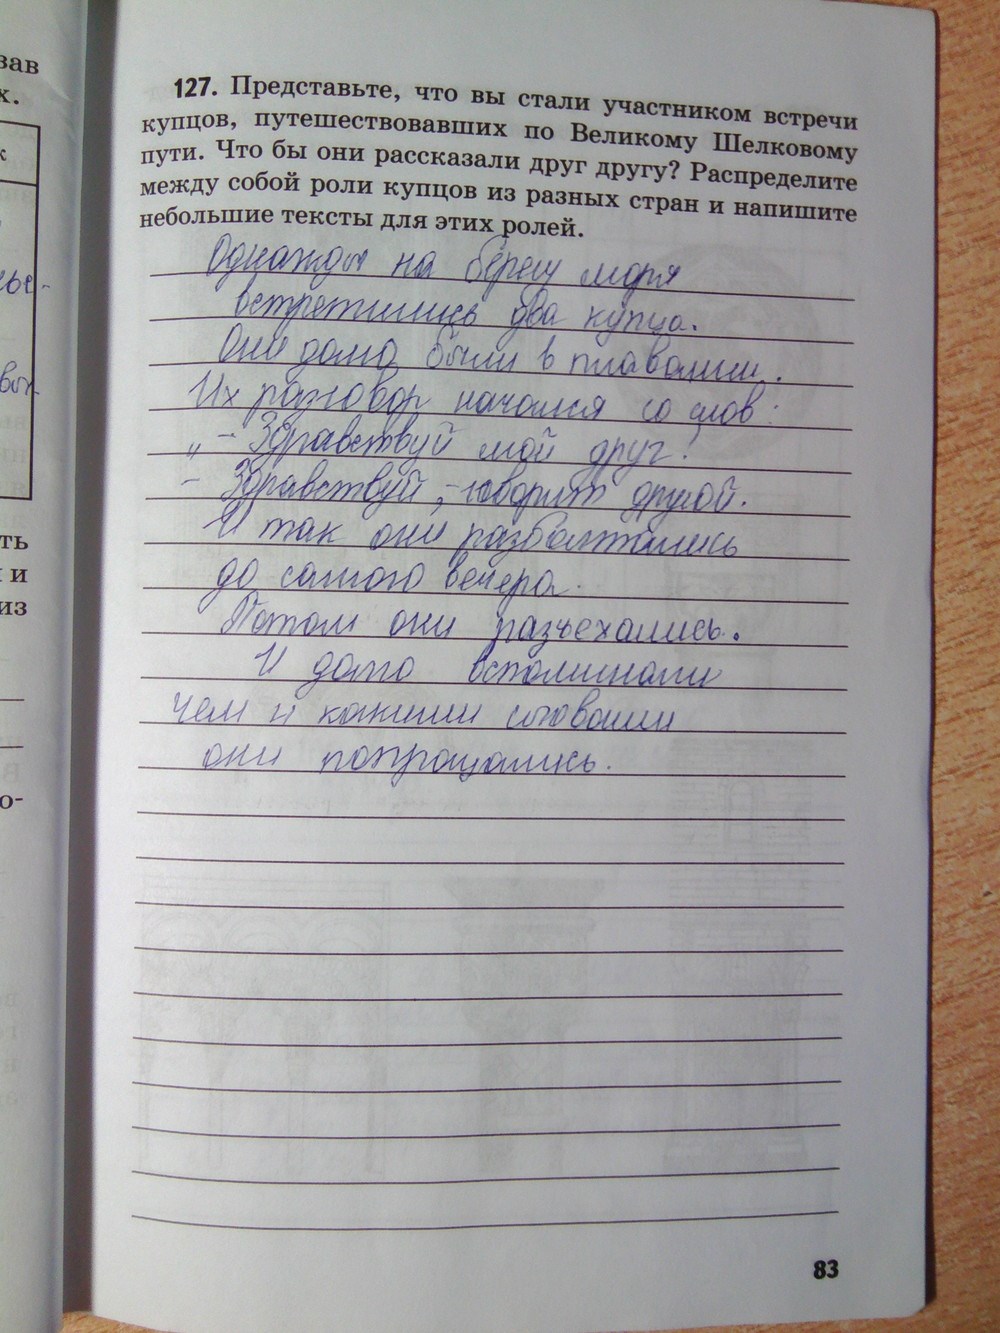 зав
х.
к
127. Представьте, что вы стали участником встречи
купцов, путешествовавших по Великому Шелковому
пути. Что бы они рассказали друг другу? Распределите
между собой роли купцов из разных стран и напишите
небольшие тексты для этих ролей.
Однажды на берегу моря
встретились два купца.
Они долго были в плавании.
Их разговор начался со слов:
„ - Здравствуй мой друг!
- Здравствуй, - говорит другой.
И так они разболтались
до самого вечера.
Потом они разъехались.
И долго вспоминали
чем и какими словами
они попрощались.
ть
и
из
о-
83